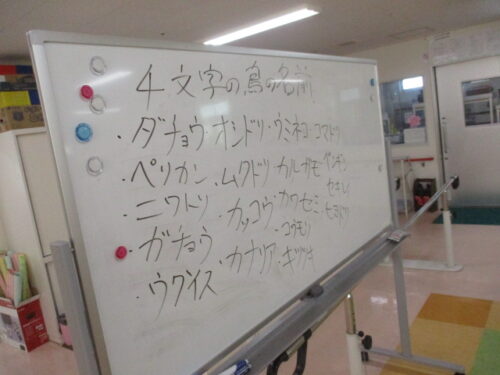 4文字の鳥の名前
・ダチョウ・オシドリ・ウミネコ・コマドリ
・ペリカン・ムクドリ・カルガモ・ペンギン
セキレイ
・ニワトリ・カッコウ・カワセミ・
・コウモリ
・ガチョウ
・ウグイス・カナリア・キツツキ